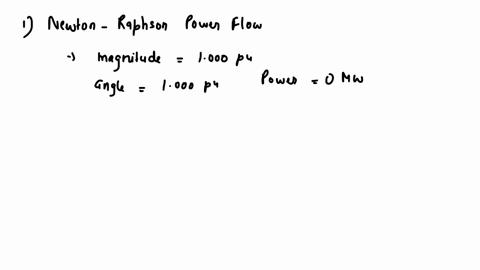 1) Newton - Raphson Power Flow
→ Magnitude = 1.000 pu
angle = 1.000 pu Power = 0 MW